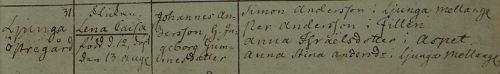 31
Ljunga
Östregård
Flickan
Lena Caisa
född d. 12, döpt
den 13 Aug.
Johannes An-
dersson, H. In-
geborg Gum-
mesdatter
Simon Andersson i Ljunga Mellangc
Per Andersson i Gillen
Anna Israelsdotter i Aspet
Anna Stina Andersd: i Ljunga Mellang